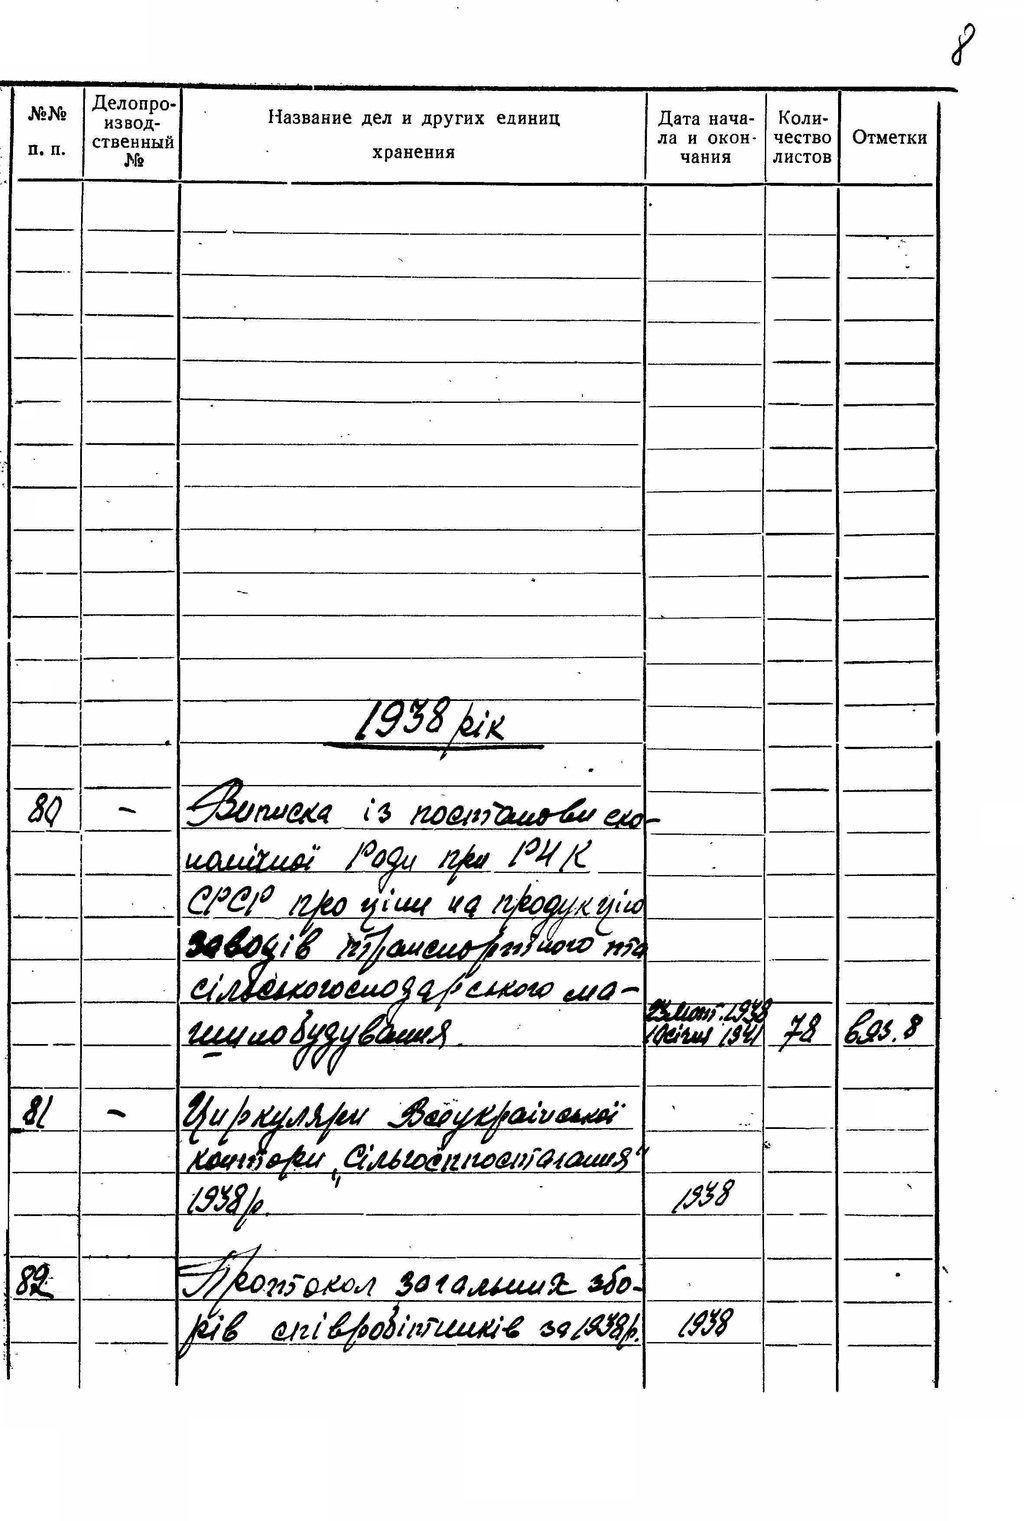 8
№№ п. п. Делопроизводственный № Название дел и других единиц хранения Дата начала и окончания Количество листов Отметки
1938 рік
80 – Виписка із постанови еко-
номічної Ради при РНК
СРСР про ціни на продукцію
заводів транспортного та
сільськогосподарського ма-
шинобудування. 1938 січня 1941 78 вяз. 8
81 – Циркуляри Всеукраїнської
контори „Сільгосппостачання"
1938р. 1938
82 Протокол загальних збо-
рів співробітників за 1938р. 1938